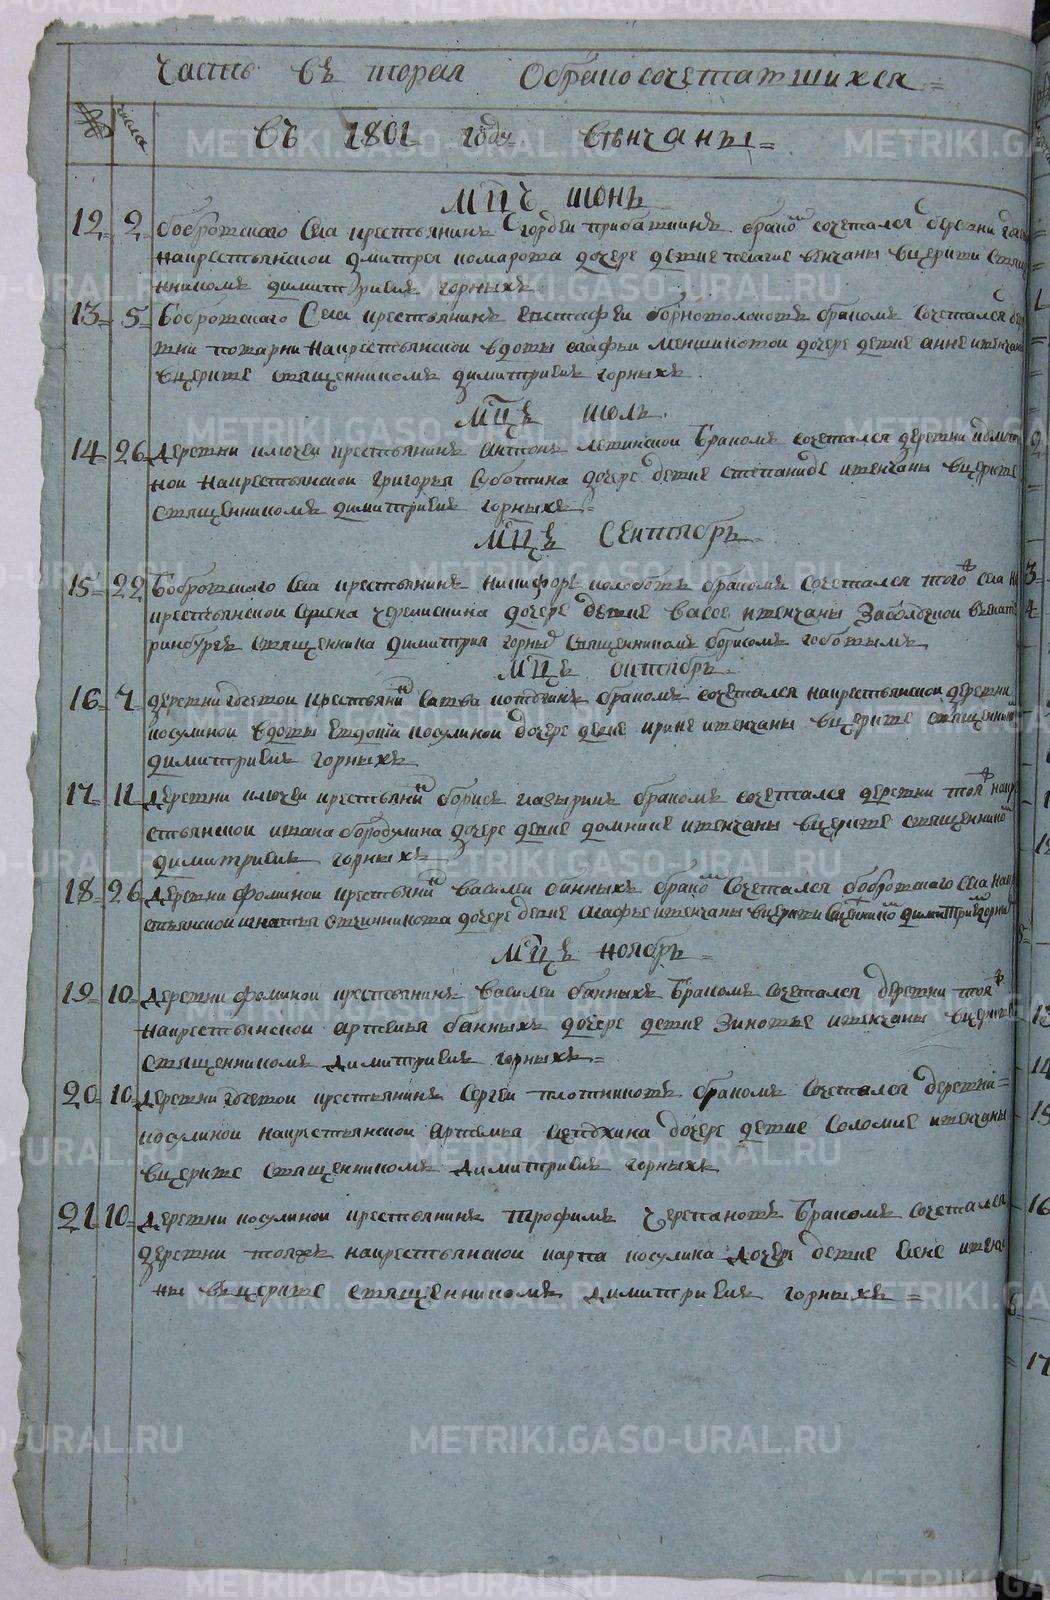 Часть въ торая Обрако сочетавшихся =
№ числа
въ 1801 году венчаны =
Мцъ июнь
12 = 2 = бобровского села крестьянинъ гордеи бракомъ сочетался деревни
накрестьянской дмитрея комарова дочере девке венчаны вцеркви свяще
нникомъ димитриемъ горныхъ
13 = 5 = Бобровского Села крестьянинъ евстафеи бракомъ сочетался дере
вни накрестьянской вдовы агафьи меншиковой дочере девке анне ивенчаны
вцеркве священникомъ димитриемъ горныхъ
Мцъ июль
14 26 деревни ключеи крестьянинъ антонъ бракомъ сочетался деревни
ной накрестьянской григорья суботина дочере девке степаниде ивенчаны вцеркве
священникомъ димитриемъ горныхъ =
Мцъ Сентябрь
15 = 22 бобровского села крестьянинъ никифоръ бракомъ сочетался того ж села на
крестьянской дочере девке вассе ивенчаны въекате
ринбурге священника димитрия горныхъ священникомъ борисомъ
Мцъ октябрь
16 = 7 = деревни крестьянинъ савва бракомъ сочетался накрестьянской деревни
косулиной вдовы евдокии косулиной дочере девке ирине ивенчаны вцеркве священникомъ
димитриемъ горныхъ
17 = 11 деревни ключеи крестьянинъ борисъ бракомъ сочетался деревни тоя ж накре
стьянской ивана бородулина дочере девке домнике ивенчаны вцеркве священникомъ
димитриемъ горныхъ
18 = 26 деревни фоминой крестьянинъ василеи банныхъ бракомъ сочетался бобровского села накре
стьянской игнатья дочере девке агафье ивенчаны вцеркви священникомъ димитриемъ горныхъ
Мцъ ноябрь =
19 = 10 = деревни фоминой крестьянинъ василеи банныхъ бракомъ сочетался деревни тоя ж
накрестьянской артемья банныхъ дочере девке зиновье ивенчаны вцеркве
священникомъ димитриемъ горныхъ =
20 = 10 деревни крестьянинъ сергеи плотниковъ бракомъ сочетался деревни =
косулиной накрестьянской артемья дочере девке соломие ивенчаны
вцеркве священникомъ димитриемъ горныхъ
21 10 = деревни косулиной крестьянинъ трофимъ черепановъ бракомъ сочетался
деревни тояжъ накрестьянской карпа косулина дочере девке елене ивенча
ны вцеркве священникомъ димитриемъ горныхъ =
METRIKI.GASO-URAL.RU